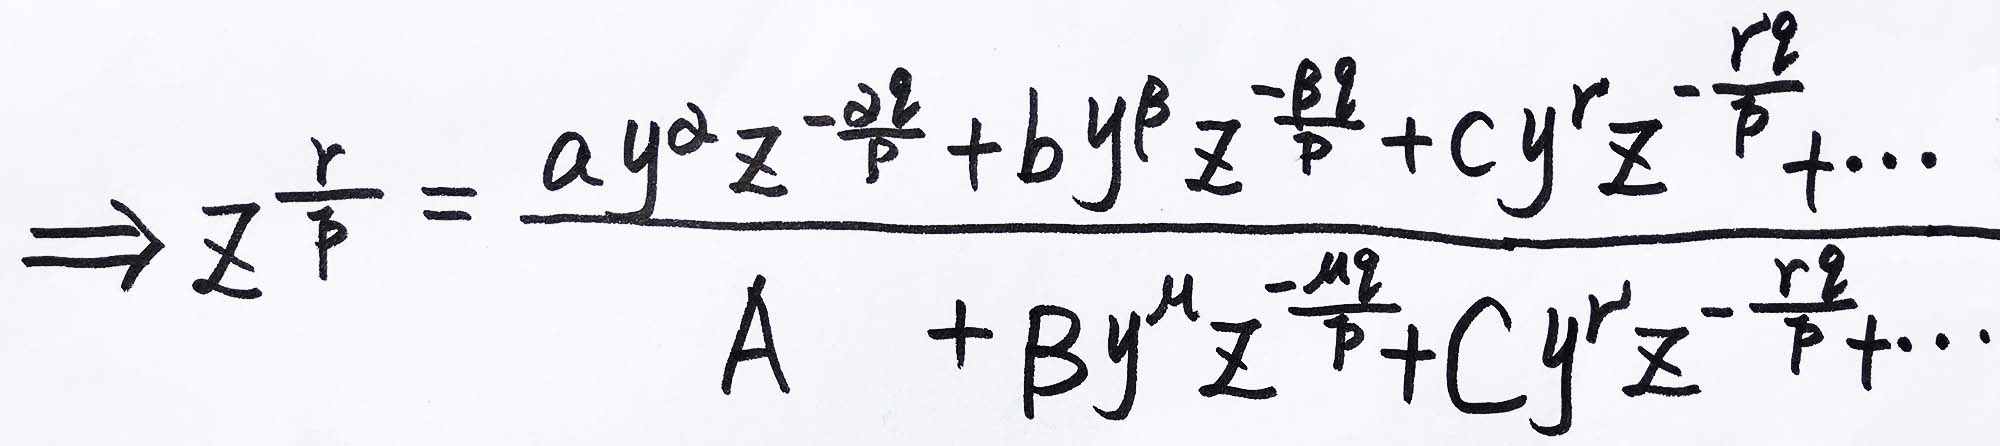 ⇒ z^{\frac{r}{p}} = \frac{a y^{α} z^{-\frac{αq}{p}} + b y^{β} z^{-\frac{βq}{p}} + c y^{r} z^{-\frac{rq}{p}} + ⋯}{A + B y^{μ} z^{-\frac{μq}{p}} + C y^{r} z^{-\frac{rq}{p}} + ⋯}